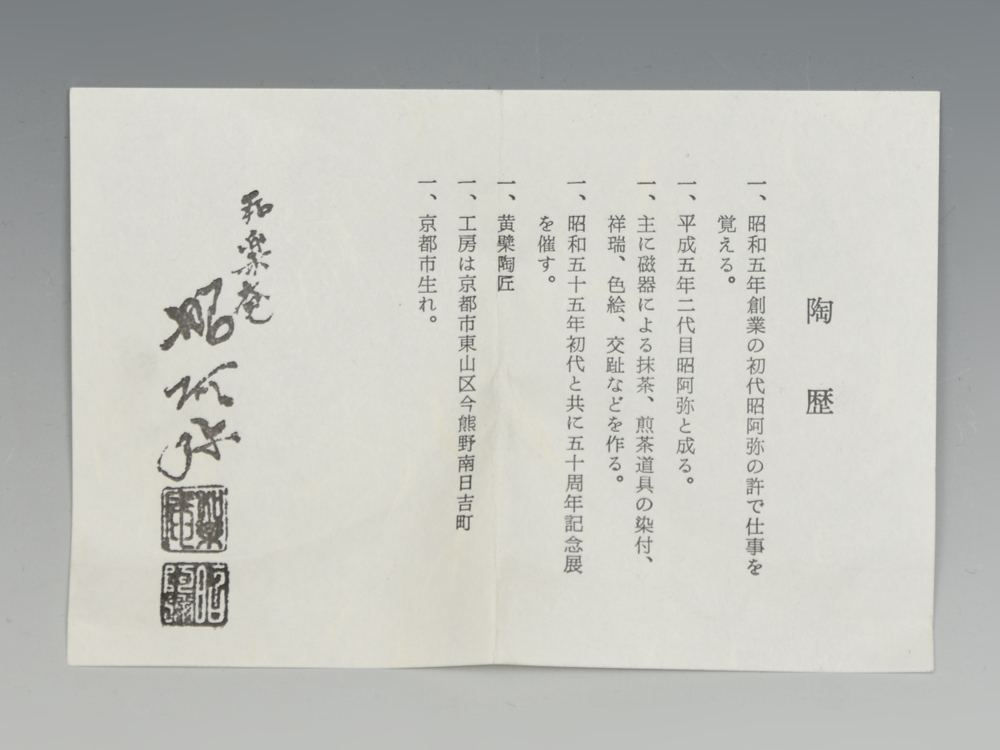 陶歴
一、昭和五年創業の初代昭阿弥の許で仕事を
覚える。
一、平成五年二代目昭阿弥と成る。
一、主に磁器による抹茶、煎茶道具の染付、
祥瑞、色絵、交趾などを作る。
一、昭和五十五年初代と共に五十周年記念展
を催す。
一、黄檗陶匠
一、工房は京都市東山区今熊野南日吉町
一、京都市生れ。
和楽庵
昭阿弥
昭阿弥